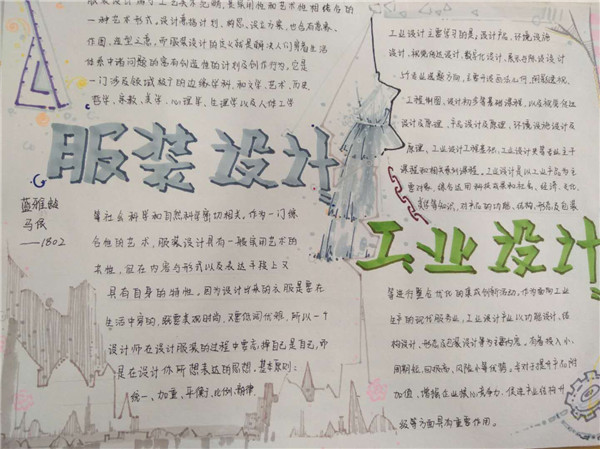 一种艺术形式,设计者根据计划、构思、设立方案,也含有意象、
作图、造型之意,而服装设计的定义就是解决人们穿着生活
体系中诸问题的富有创造性的计划及创作行为,它是
一门涉及领域极广的边缘学科,和文学、艺术、历史
哲学、宗教、美学、心理学、生理学以及人体工学
服装设计
蓝雅
马保
——1802
等社会科学和自然科学密切相关。作为一门综
合性的艺术,服装设计具有一般实用艺术的
共性,但在内容与形式以及表达手段上又
具有自身的特性,因为设计出来的衣服是要在
生活中穿的,既要美观时尚,又要休闲优雅,所以一个
设计师在设计服装的过程中
是在设计你所想表达的思想,基本原则:
统一、加重、平衡、比例、韵律
工业设计主要学习的是:设计产品、环境设施
设计、视觉传达设计、数字化设计、展示陈设设计
计专业选题方向,主要开设画法几何、阴影透视、
工程制图、设计初步等基础课程,以及视觉传达
设计及原理、产品设计及原理、环境设施设计及
原理、工业设计工程基础、工业设计史等专业主干
课程和相关系列课程。工业设计是以工业产品为主
要对象,综合运用科技成果和社会、经济、文化、
美学等知识,对产品的功能、结构、形态及包装
工业设计
等进行整合优化的集成创新活动。作为面向工业
生产的现代服务业,工业设计产业以功能设计、结
构设计、形态及包装设计等为主要内容。有着投入小、
周期短、回报高、风险小等优势,
加值、增强企业核心竞争力、促进产业结构升
级等方面具有重要作用。